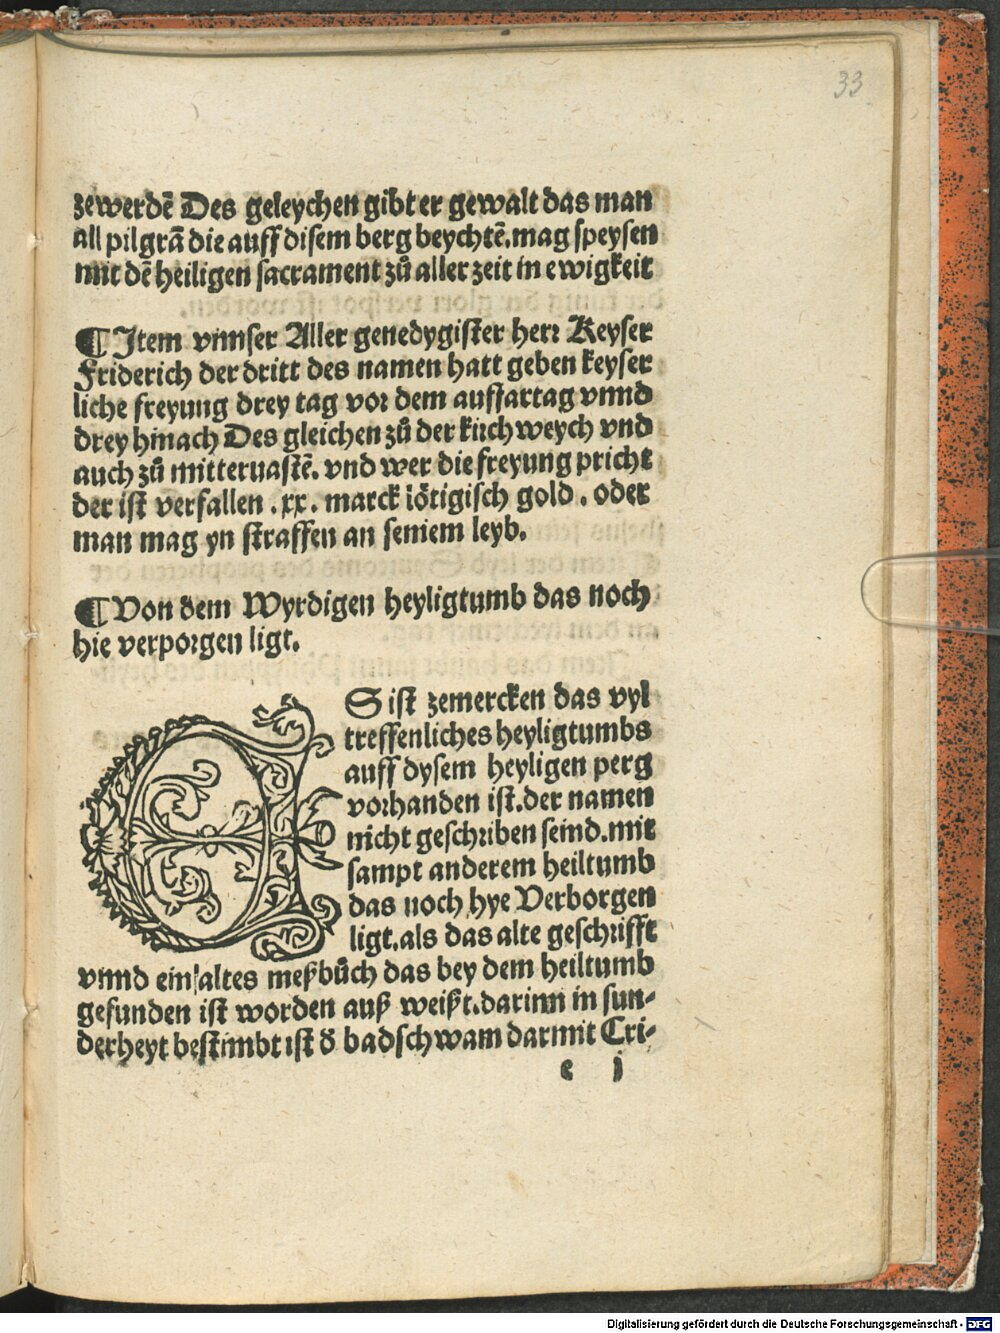 33
zewerdē Des geleychen gibt er gewalt das man
all pilgrā die auff disem berg beychtē. mag speysen
mit dē heiligen sacrament zů aller zeit in ewigkeit
¶ Item vnnser Aller genedygister herr Keyser
Friderich der dritt des namen hatt geben keyser
liche freyung drey tag vor dem auffartag vnnd
drey hinach Des gleichen zů der kirchweych vnd
auch zů mitteruastē. vnd wer die freyung pricht
der ist verfallen .xx. marck lötigisch gold. oder
man mag yn straffen an seinem leyb.
¶ Von dem Wyrdigen heyligtumb das noch
hie verporgen ligt.
ES ist zemercken das vyl
treffenliches heyligtumbs
auff dysem heyligen perg
vorhanden ist. der namen
nicht geschriben seind. mit
sampt anderem heiltumb
das noch hye Verborgen
ligt. als das alte geschrifft
vnnd ein altes meßbůch das bey dem heiltumb
gefunden ist worden auß weißt. darinn in sun-
derheyt bestimbt ist ð badschwam darmit Cri-
e j
Digitalisierung gefördert durch die Deutsche Forschungsgemeinschaft - DFG